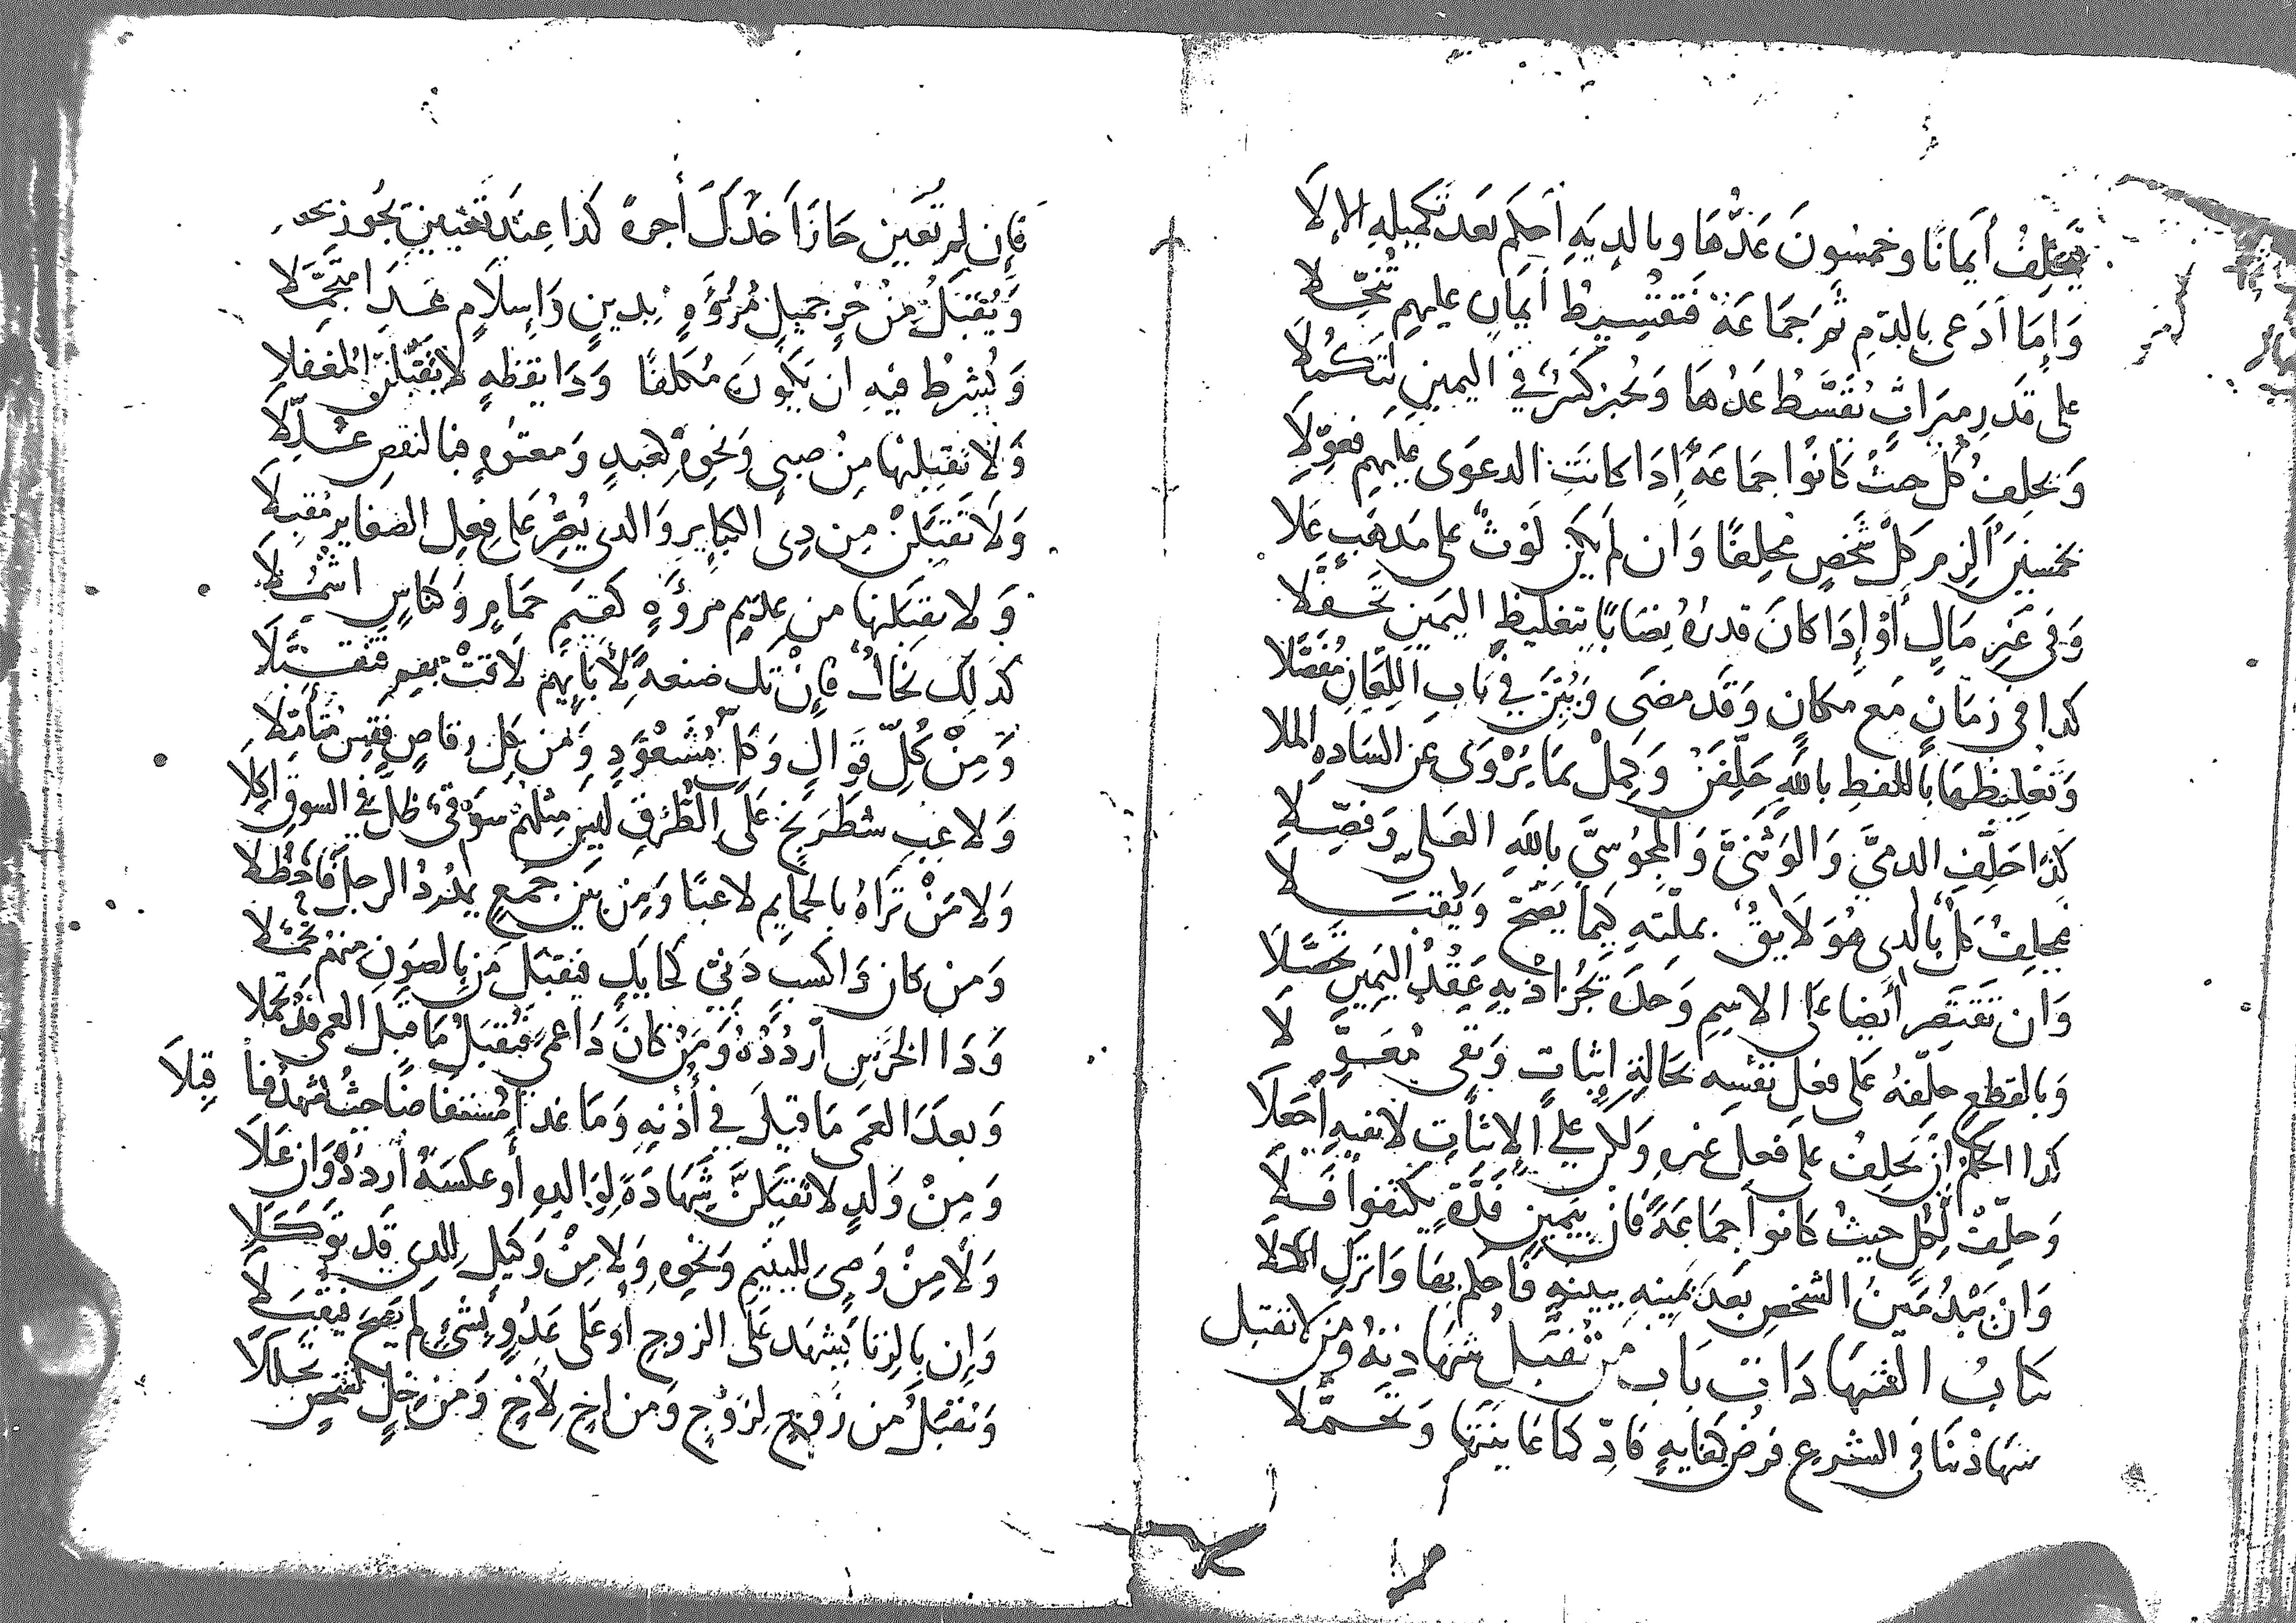 يَحلِفُ أيمانًا وخمسُونَ عَدُّهَا وبالديَهِ احكم بَعد تكميلِهِ الإلَا
وَإِمَا ادَعى بالدّمِ ثم جَمَاعَةٌ فَتقسِيطُ أيمانٍ عليهم تنخّلا
على قدرِ ميرَاثٍ تُقسَّطُ عَدُهَا وَجُبر كَسرٌ في اليمينِ لتَكمُلَا
وَيحلِفُ كُلٌ حيثُ كَانوُا جماعَةً إِذَا كانَتِ الدعوَى عليهِم فعوِّلَا
بخمسِينَ الزم كلَّ شخصٍ محلِفًا وَان لم يكن لَوْثٌ على مَذهَبٍ عَلا
وَفي غَيرِ مَالٍ أوْ إِذَا كانَ قدرُهُ نِصَابًا بتغليظِ اليَمينِ تحفّلا
كذا في زمَانٍ مَع مكانٍ وَقَد مضَى وَبُيّنَ في بَابِ اللِّعَانِ مُفَصَّلا
وَتَغْلِيظهَا باللفظِ باللهِ حَلِّفَن وَجمِلْ بمَا يُرْوَى عَنِ السَادهِ الملا
كذَا حَلِّفِ الذميَّ وَالوَثَنيَّ وَالمجُوسيَّ باللهِ العَلي وَفصِّلا
فيحلِفُ كلٌ بالذى هُوَ لَايِقٌ بملّتهِ كيمَا يَصحّ وَيُقبَلا
وَان تقتَصِر أيضا عَلى الاسِمِ وَحدَه يَجُز اذ بهِ عَقْدُ اليَمِينِ تحصَّلَا
وَبالقطعِ حلّفهُ على فعلِ نفسِه بحَالةِ إثبات وَنفى مُعَوِّلَا
كذا الحكمُ ان يحلِفْ على فعل غيره وَلكن على الإثبَاتِ لا نفيهِ اجعَلَا
وَحلِّفْ لِكُلٍ حيثُ كانوا جماعَةً فان بيمينٍ فَذَّةٍ يكتفوا فَلَا
وَانْ تبْدُ مِنُ الشخصِ بَعدَ يَمينِهِ ببينهٍ فاحكم بهَا وَاترُلِ الالَا
كتابُ الشهَادَاتِ بَاب من تُقبَلُ شهَادتهُ ومن لا تقبل
شهَادتنَا في الشرعِ فرضُ كفايهٍ فادِّ كما عَاينتَهَا وَتحمُّلا
فإِن لم تعَين جَازَ اخذُكَ أجرهً كذا عِندَ تَعيينٍ يجُوز
وَيُقبَلُ مِنْ حُرٍ جميلٍ مُرُؤَةٍ بدينٍ وَإسلَامٍ غَدَا متجَمَّلَا
وَيُشرطُ فيهِ ان يكُونَ مُكلّفًا وَذَا يقظهٍ لا تقبَلنّ المُغَفَّلَا
وَلَا تقبلنها مِنْ صبيٍ وَنحوِهِ كعَبدٍ وَمعتوهٍ فبالنقصِ عُلِّلَا
وَلَا تَقبَلَنْ مِن ذِى الكبايرِ وَالذى يُصِرُّ عَلى فِعِل الصغايرِ مُقبِلَا
وَلا تقبَلنها من عديمِ مرؤَةٍ كَقيّمِ حمَامٍ وَكنّاسٍ اشمُلَا
كَذلِكَ نخالٌ فإِنْ تك صنعةً لأبَائهِم لَاقتْ بهم فتقبَّلَا
وَمِنْ كُلِّ قَوّالٍ وَكلِّ مُشَعْوَذٍ وَمن كلِّ رقاصٍ فقِس متأمّلَا
وَلاعِبِ شطرَنجٍ عَلى الطُّرقِ ليسَ مِثلهُم سَوقيٌ ظلَّ في السوقِ اكِلَا
وَلا مَنْ تَرَاهُ بالحمايمِ لاعبًا وَمِن بَين جمعٍ يمدُدُ الرجلَ فاحظُلَا
وَمن كان ذا كسبٍ دَنيٍّ كحايكٍ فتقبَل مَن بالصَونِ منهُم تجَمَّلَا
وَذَا الخرَسِ اردُدْهُ وَمَنْ كانَ ذَا عمىً فتُقبَلُ مَا قبلَ العمى قد تحمَّلا
وَبعدَ العَمى مَا قيلَ في أُذنِهِ وَمَا غدا مُستفَاضًا حيثُ يشهَدُ فا قبِلَا
وَمِنْ وَلدٍ لا تقبَلَنَّ شهَادَةً لِوَالِدهِ أو عكسَهُ اردُدْ وَان عَلَا
وَلَا مِنْ وَصىٍ لليتيمِ وَنحْوِهِ وَلَا مِنْ وَكيلٍ للذى قَد توَكَلَا
وَإِن بالزِنا يَشهَد عَلَى الزوجِ أو على عَدُوٍ بشئٍ لم يصَح فيُقبَلَا
وَتقبَلُ من زَوْجٍ لزَوْجٍ وَمن اخٍ لأخٍ وَمن خلٍ لشخصٍ تخلَّلَا